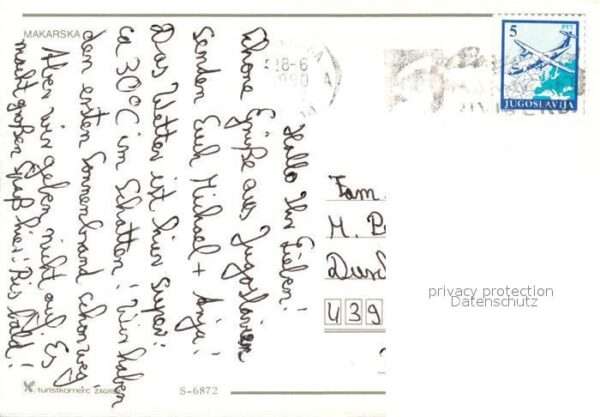 MAKARSKA
Hallo Ihr Lieben!
Schöne Grüße aus Jugoslawien
senden Euch Michael + Anja!
Das Wetter ist hier super:
ca 30°C im Schatten! Wir haben
den ersten Sonnenbrand schon weg,
Aber wir geben nicht auf. Es
macht großen Spaß hier! Bis bald!
18-6
1990
5
JUGOSLAVIJA
Fam.
H. P
439
privacy protection
Datenschutz
S-6872